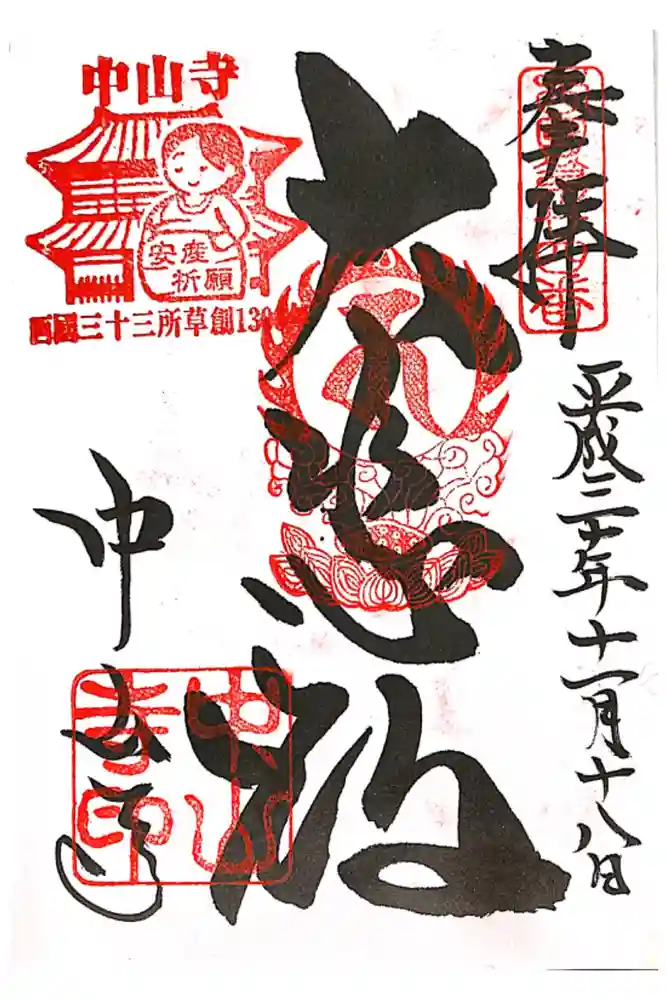 奉拝
平成三十年十一月十八日
大悲殿
中山寺
安産
祈願
西國三十三所草創130
中山寺
中山
寺印